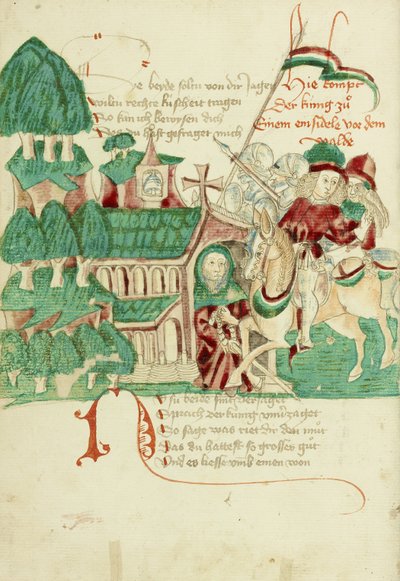 Die beyde solen von dir Jagen
Wilen rechte kuscheit tragen
So kan ich bewysen dich
Des du hast gefraget mich
Hie kompt
Der kunig zů
Einem einsidele vor dem
walde
Nu beide sint versaget
Sprach der kunig unverzaget
So sage was riet dir den můt
Das du hattest so grosses gůt
Und es liesse umb einen won